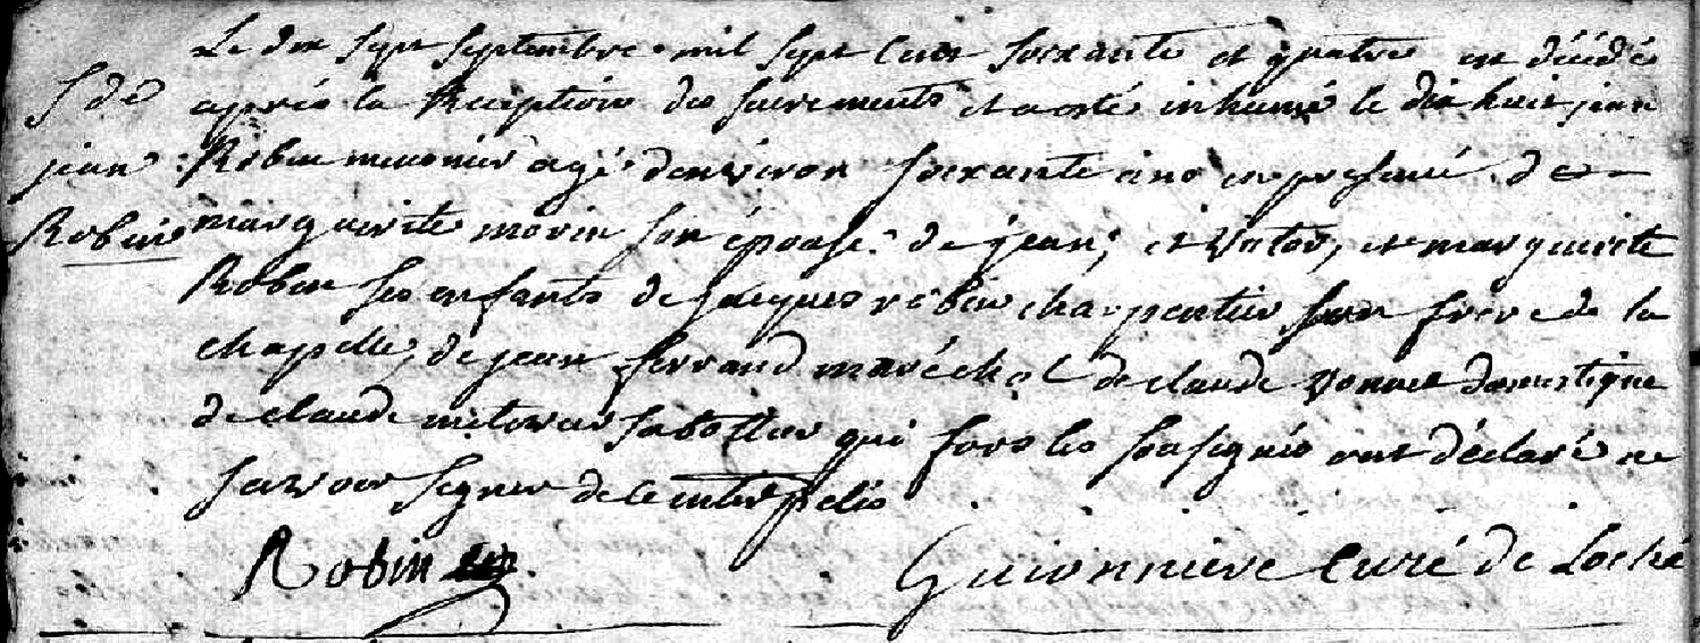 Le dix sept septembre mil sept cent soixante et quatre est décédé
S de
après la Reception des sacrements et a esté inhumé le dix huit jean
jean
Robin meusnier agé d'environ soixante ans en presence de
Robin
marguerite morin son épouse de jean, et victor, et marguerite
Robin ses enfants de jacques robin charpentier son frere de la
chapelle, de jean ferrand maréchal de claude domestique
de claude sabottier qui fors les soussignés ont déclaré ne
scavoir signer de ce interpelés
Robin
Guionniere Curé de Loché